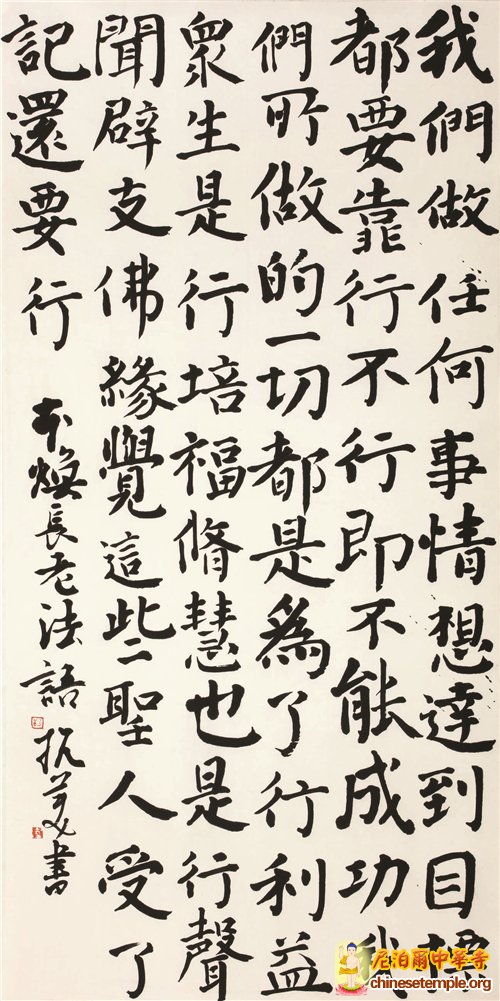 我們做任何事情想達到目標
都要靠行不行即不能成功我
們所做的一切都是為了行利益
眾生是行培福脩慧也是行聲
聞辟支佛緣覺這些聖人受了
記還要行
本煥長老法語
抗美書
尼泊爾中華寺
chinesetemple.org